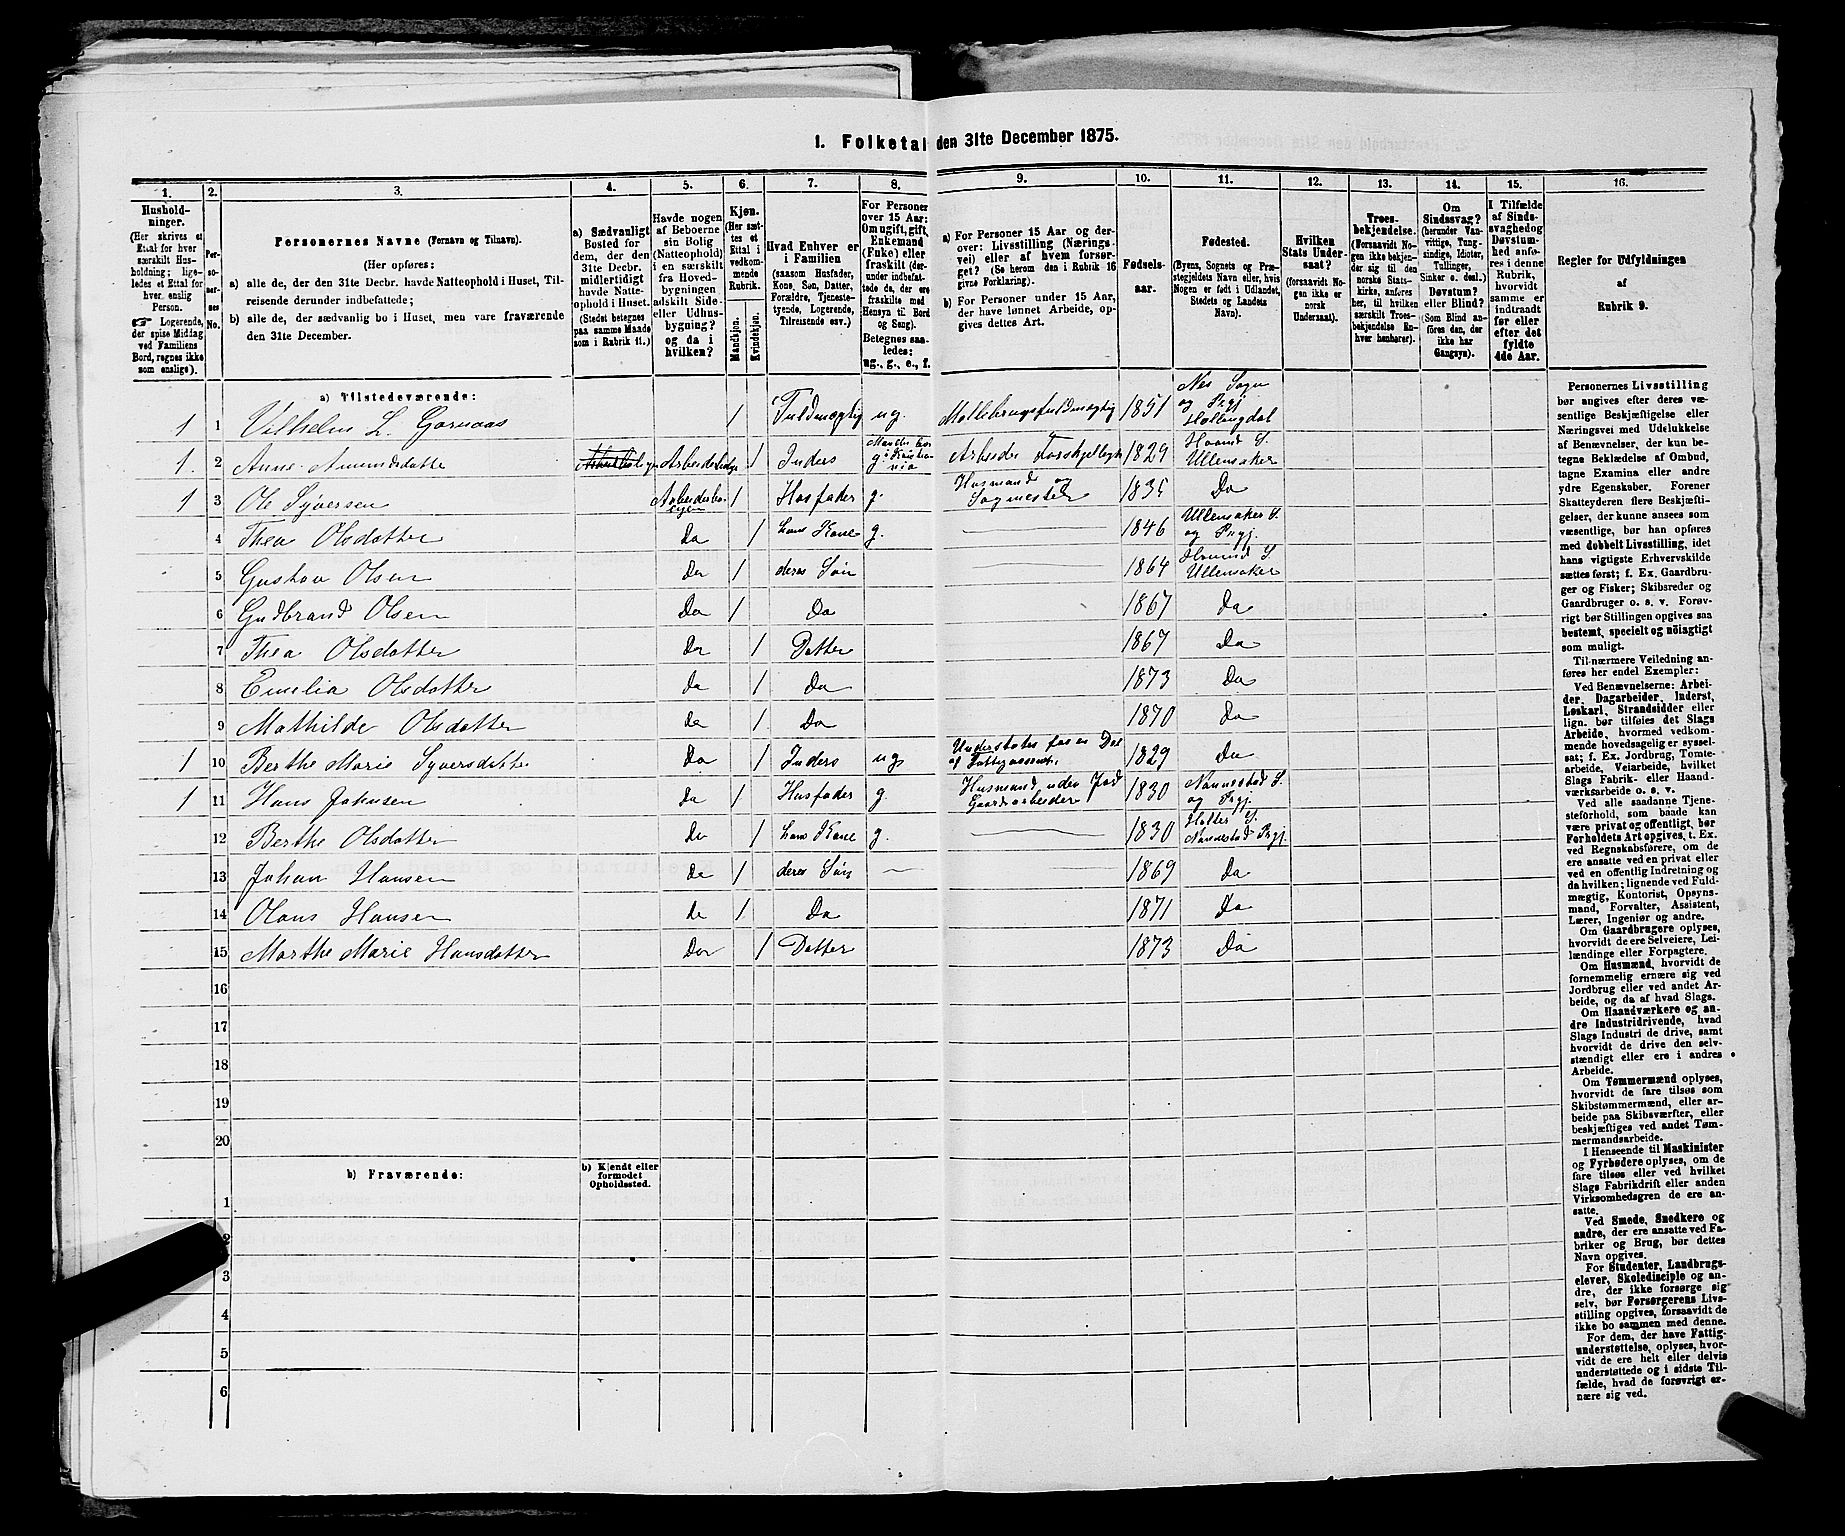 1. Folketal den 31te December 1875.
1. 2. 3. 4. 5. 6. 7. 8. 9. 10. 11. 12. 13. 14. 15. 16.
Hushold-
ninger.
(Her skrives et
Ettal for hver
særskilt Hus-
holdning; lige-
ledes et Ettal for
hver enslig
Person.
☞ Logerende,
der spise Middag
ved Familiens
Bord, regnes ikke
som enslige).
Per-
so-
ner-
nes
No.
Personernes Navne (Fornavn og Tilnavn).
(Her opføres:
a) alle de, der den 31te Decbr. havde Natteophold i Huset, Til-
reisende derunder indbefattede;
b) alle de, der sædvanlig bo i Huset, men vare fraværende
den 31te December.
a) Sædvanligt
Bosted for
dem, der den
31te Decbr.
midlertidigt
havde Natte-
ophold i Huset.
(Stedet betegnes
paa samme Maade
som i Rubrik 11.)
Havde nogen
af Beboerne
sin Bolig
(Natteophold)
i en særskilt
fra Hoved-
bygningen
adskilt Side-
eller Udhus-
bygning?
og da i
hvilken?
Kjøn.
(Her sæt-
tes et
Ettal i
vedkom-
mende
Rubrik.
Mandkjøn.
Kvindekjøn.
Hvad Enhver er
i Familien
(saasom Husfader,
Kone, Søn, Datter,
Forældre, Tjeneste-
tyende, Logerende,
Tilreisende osv.)
For Personer
over 15 Aar:
Om ugift, gift,
Enkemand
(Enke) eller
fraskilt (der-
under indbefat-
tede, der ere
fraskilte med
Hensyn til Bord
og Seng).
Betegnes saa-
ledes:
ug., g., e., f.
a) For Personer 15 Aar og der-
over: Livsstilling (Nærings-
vei) eller af hvem forsør-
get? (Se herom den i Rubrik 16
givne Forklaring).
b) For Personer under 15 Aar,
der have lønnet Arbeide, op-
gives dettes Art.
Fødsels-
aar.
Fødested.
(Byens, Sognets og Præ-
stegjeldets Navn eller, hvis
Nogen er født i Udlandet,
Stedets og Landets
Navn).
Hvilken
Stats Under-
saat?
(forsaavidt No-
gen ikke er
norsk
Undersaat).
Troes-
bekjendelse.
(Forsaavidt No-
gen ikke bekjen-
der sig til den
norske Stats-
kirke, anføres
her, til hvilken
særskilt Troes-
bekjendelse En-
hver henhører).
Om
Sindssvag?
(herunder Van-
vittige, Tung-
sindige, Idioter,
Tullinger,
Sinker o. desl.)
Døvstum?
eller Blind?
(Som Blind an-
føres den, der
ikke har
Gangsyn).
I Tilfælde
af Sinds-
svaghed og
Døvstum-
hed anfø-
res i denne
Rubrik,
hvorvidt
samme er
indtraadt
før eller
efter det
fyldte
4de Aar.
Regler for Udfyldningen
af
Rubrik 9.
a) Tilstedeværende:
1 1 Vilhelm L. Garnaas 1 Fuldmægtig ug. Møllebrugsfuldmægtig 1851 Nes Sogn og Prgj Hallingdal
1. 2 Anne Amundsdatte 1 Inders g Arbeider Forskjelligt 1829 Hovind S. Ullensaker
1 3 Ole Syversen 1 Husfader g. Husmand og 1835 Do
4 Thea Olsdatter Do 1 hans Kone g. 1846 Ullensaker S. og Prgj.
5 Gustav Olsen Do 1 deres Søn 1864 Hovind S. Ullensaker
6 Gudbrand Olsen Do 1 Do 1867 Do
7 Thea Olsdatter Do 1 Datter 1867 Do
8 Emelia Olsdatter Do 1 Do 1873 Do
9 Mathilde Olsdatter Do 1 Do 1870 Do
1 10 Berthe Marie Syversdatte Do 1 Inders ug 1829 Do
1 11 Hans Johnsen Do 1 Husfader g. Husmand uden Jord Gaardsarbeider 1830 Nannestad S. og Prgj.
12 Berthe Olsdatter Do 1 hans Kone g. 1830 Holter S. Nannestad Prgj.
13 Johan Hansen Do 1 deres Søn 1869 Do
14 Olaus Hansen Do 1 Do 1871 Do
15 Marthe Marie Hansdatter Do 1 Datter 1873 Do
16
17
18
19
20
b) Fraværende:
b) Kjendt eller
formodet
Opholdssted.
1
2
3
4
5
6
Personernes Livsstilling
bør angives efter deres væ-
sentlige Beskjæftigelse eller
Næringsvei med Udelukkelse
af Benævnelser, der kun be-
tegne Beklædelse af Ombud,
tagne Examina eller andre
ydre Egenskaber. Forener
Skatteyderen flere Beskjæfti-
gelser, der kunne ansees som
væsentlige, bør han opføres
med dobbelt Livsstilling, idet
hans vigtigste Erhvervskilde
sættes først; f. Ex. Gaardbru-
ger og Fisker; Skibsreder og
Gaardbruger o. s. v. Forøv-
rigt bør Stillingen opgives saa
bestemt, specielt og nöiagtigt
som muligt.
Til nærmere Veiledning an-
føres her endel Exempler:
Ved Benævnelserne: Arbei-
der, Dagarbeider, Inderst,
Løskarl, Strandsidder eller
lign. bør tilføies det Slags
Arbeide, hvormed vedkom-
mende hovedsagelig er syssel-
sat; f. Ex. Jordbrug, Tomte-
arbeide, Veiarbeide, hvilket
Slags Fabrik- eller Haand-
værksarbeide o. s. v.
Ved alle saadanne Tjene-
steforhold, som baade kan
være privat og offentligt, bør
Forholdets Art opgives, t. Ex.
ved Regnskabsførere, om de
ere ansatte ved en privat eller
ved en offentlig Indretning og
da hvilken; lignende ved Fuld-
mægtig, Kontorist, Opsyns-
mand, Forvalter, Assistent,
Lærer, Ingeniør og andre.
Om Gaardbrugere oplyses,
hvorvidt de ere Selveiere, Lei-
lændinge eller Forpagtere.
Om Husmænd, hvorvidt de
fornemmelig ernære sig ved
Jordbrug eller ved andet Ar-
beide, og da af hvad Slags.
Om Haandværkere og an-
dre Industridrivende, hvad
Slags Industri de drive, samt
hvorvidt de drive den selv-
stændigt eller ere i andres
Arbeide.
Om Tømmermænd oplyses,
hvorvidt de fare tilsøs som
Skibstømmermænd, eller ar-
beide paa Skibsværfter, eller
beskjæftiges ved andet Tøm-
mermandsarbeide.
I Henseende til Maskinister
og Fyrbødere oplyses, om de
fare tilsøs eller ved hvilket
Slags Fabrikdrift eller anden
Virksomhedsgren de ere an-
satte.
Ved Smede, Snedkere og
andre, der ere ansatte ved Fa-
briker og Brug, bør dettes
Navn opgives.
For Studenter, Landbrugs-
elever, Skoledisciple og an-
dre, der ikke forsørge sig
selv, bør Forsørgerens Livs-
stilling opgives, forsaavidt de
ikke bo sammen med denne.
For dem, der have Fattig-
understøttelse, oplyses, hvor-
vidt de ere helt eller delvis
understøttede og i sidste Til-
fælde, hvad de forøvrigt er-
nære sig ved.